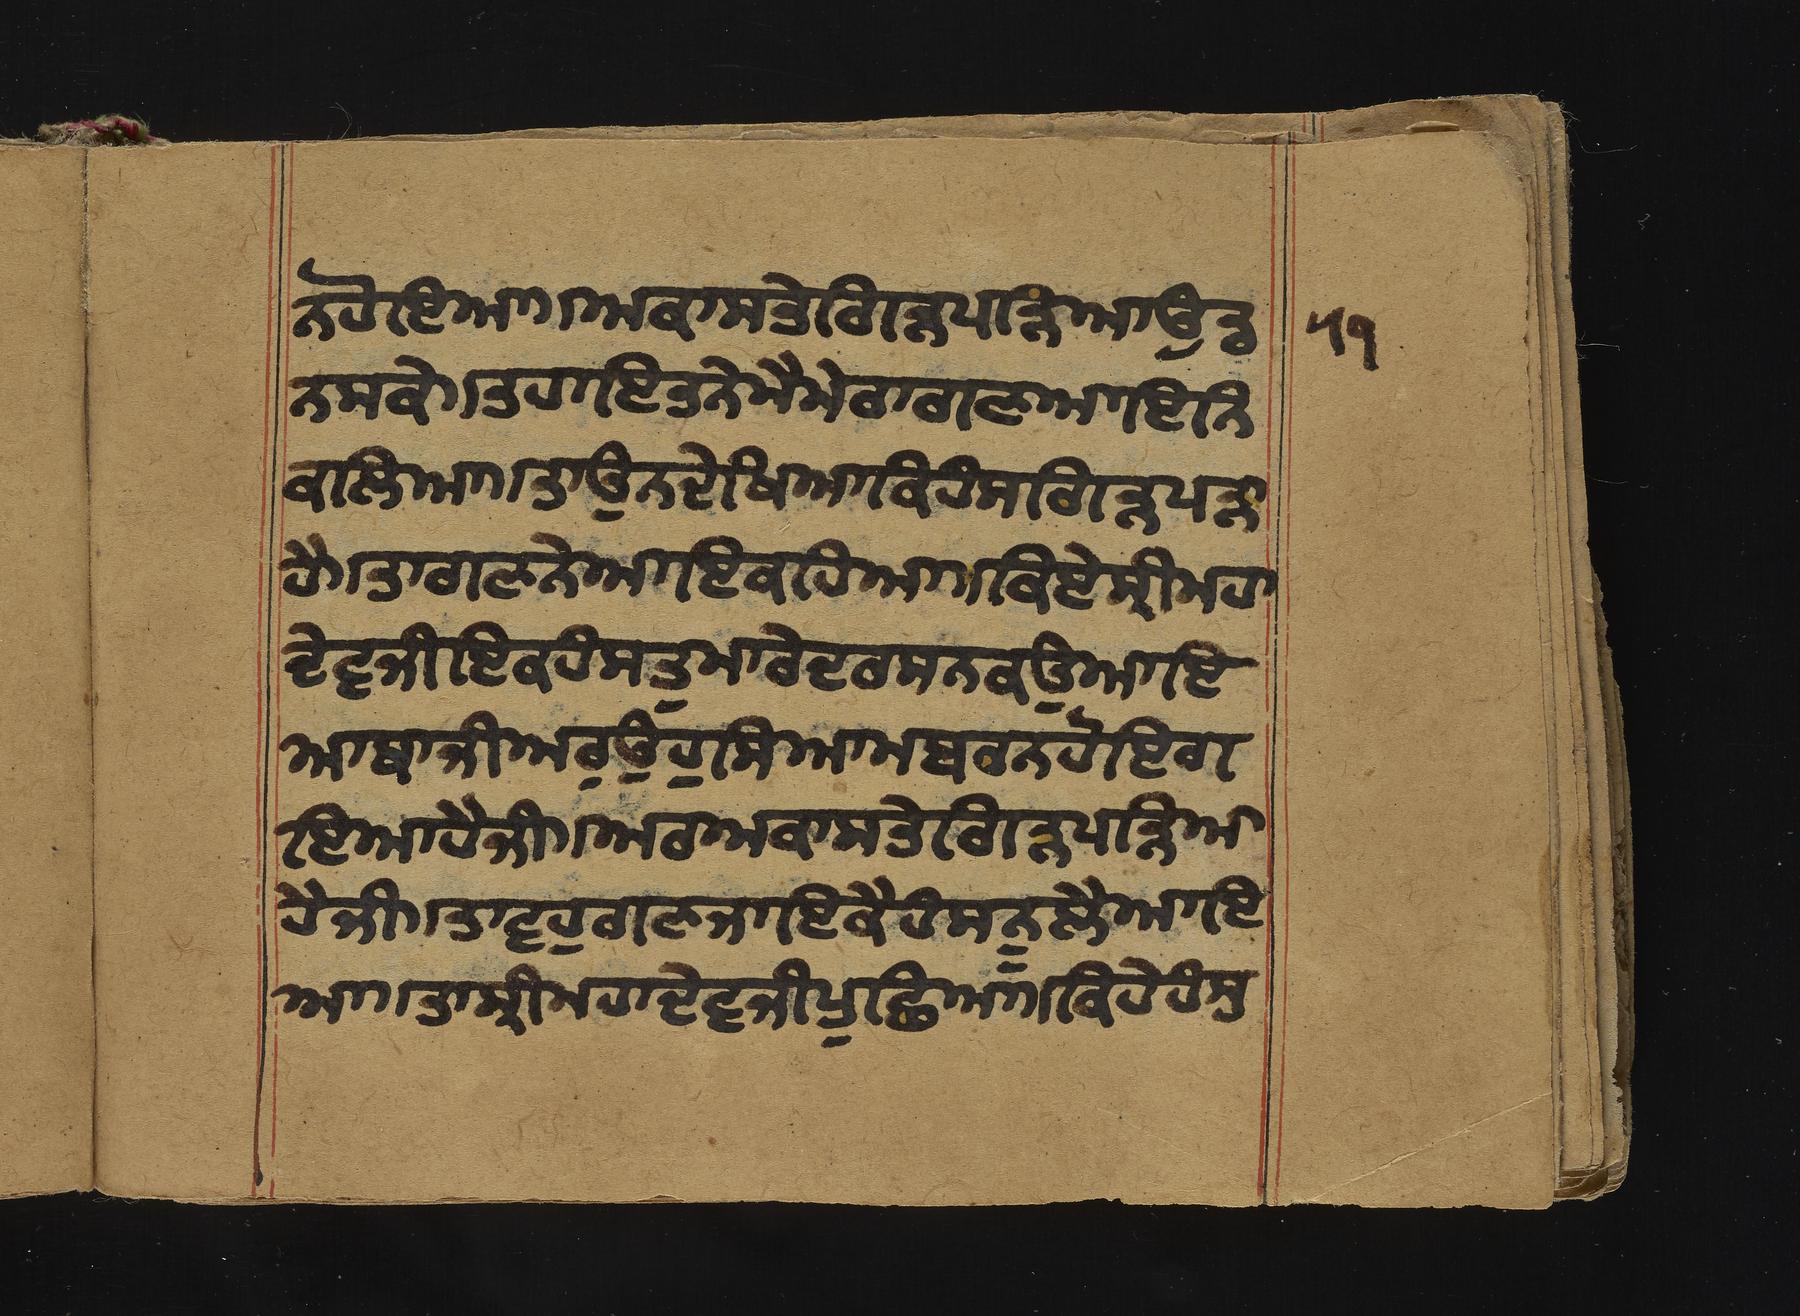 ਨਹੋਇਆ।ਅਕਾਸਤੇਗਿੜਪੜਿਆਉਡ ੫੧
ਨਸਕੇ।ਤਹਾਇਤਨੇਮੈਮੇਰਾਗਣਆਇਨਿ
ਕਲਿਆ।ਤਾਉਨਦੇਖਿਆਕਿਹੰਸਗਿੜਪੜਾ
ਹੈ।ਤਾਗਣਨੇਆਇਕਹਿਆ।ਕਿਏਸ੍ਰੀਮਹਾ
ਦੇਵਜੀਇਕਹੰਸਤੁਮਾਰੇਦਰਸਨਕਉਆਇ
ਆਥਾਜੀਅਰੁਉਹੁਸਿਆਮਬਰਨਹੋਇਗ
ਇਆਹੈਜੀ।ਅਰਅਕਾਸਤੇਗਿੜਪੜਿਆ
ਹੈਜੀ।ਤਾਵਹੁਗਣਜਾਇਕੈਹੰਸਨੁਲੈਆਇ
ਆ।ਤਾਸ੍ਰੀਮਹਾਦੇਵਜੀਪੁਛਿਆ।ਕਿਹੇਹੰਸ